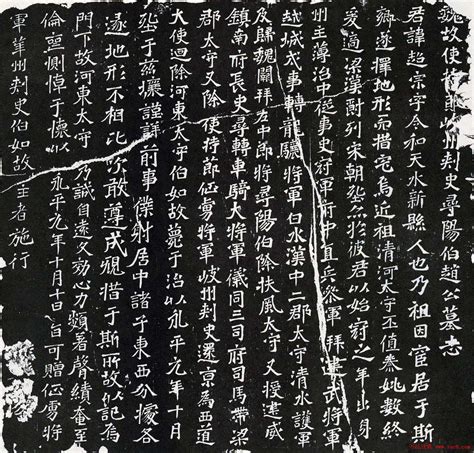 魏故使持節岐州刺史尋陽伯趙公墓志
君諱超宗字令和天水新縣人也乃祖因宦居于斯
鄉遂擇地形而措宅焉近祖清河太守丕值秦姚數終
爰適梁漢爵列宋朝於彼君以始冠之年出身
州主薄治中從事史府軍府中直兵參軍拜建武將軍
越城戍事轉龍驤將軍白水漢中二郡太守清水護軍
及歸魏闕拜左中郎將尋陽伯除扶風太守又授建威
鎮南府長史尋轉車騎大將軍儀同三司府司馬帶梁
郡太守又除使持節征虜將軍岐州刺史還京為西道
大使迴除河東太守伯如故薨于治以永平元年十月
于兹壤謹詳前事僕射居中諸子東西分據各
遂地形不相比次敢遵成規措于斯所故以記焉
門下故河東太守乃誠自遠又効心力頻著聲績奄至
倫喪惻悼于懷以永平元年十月十日旨可贈征虜將
軍華州刺史伯如故主者施行